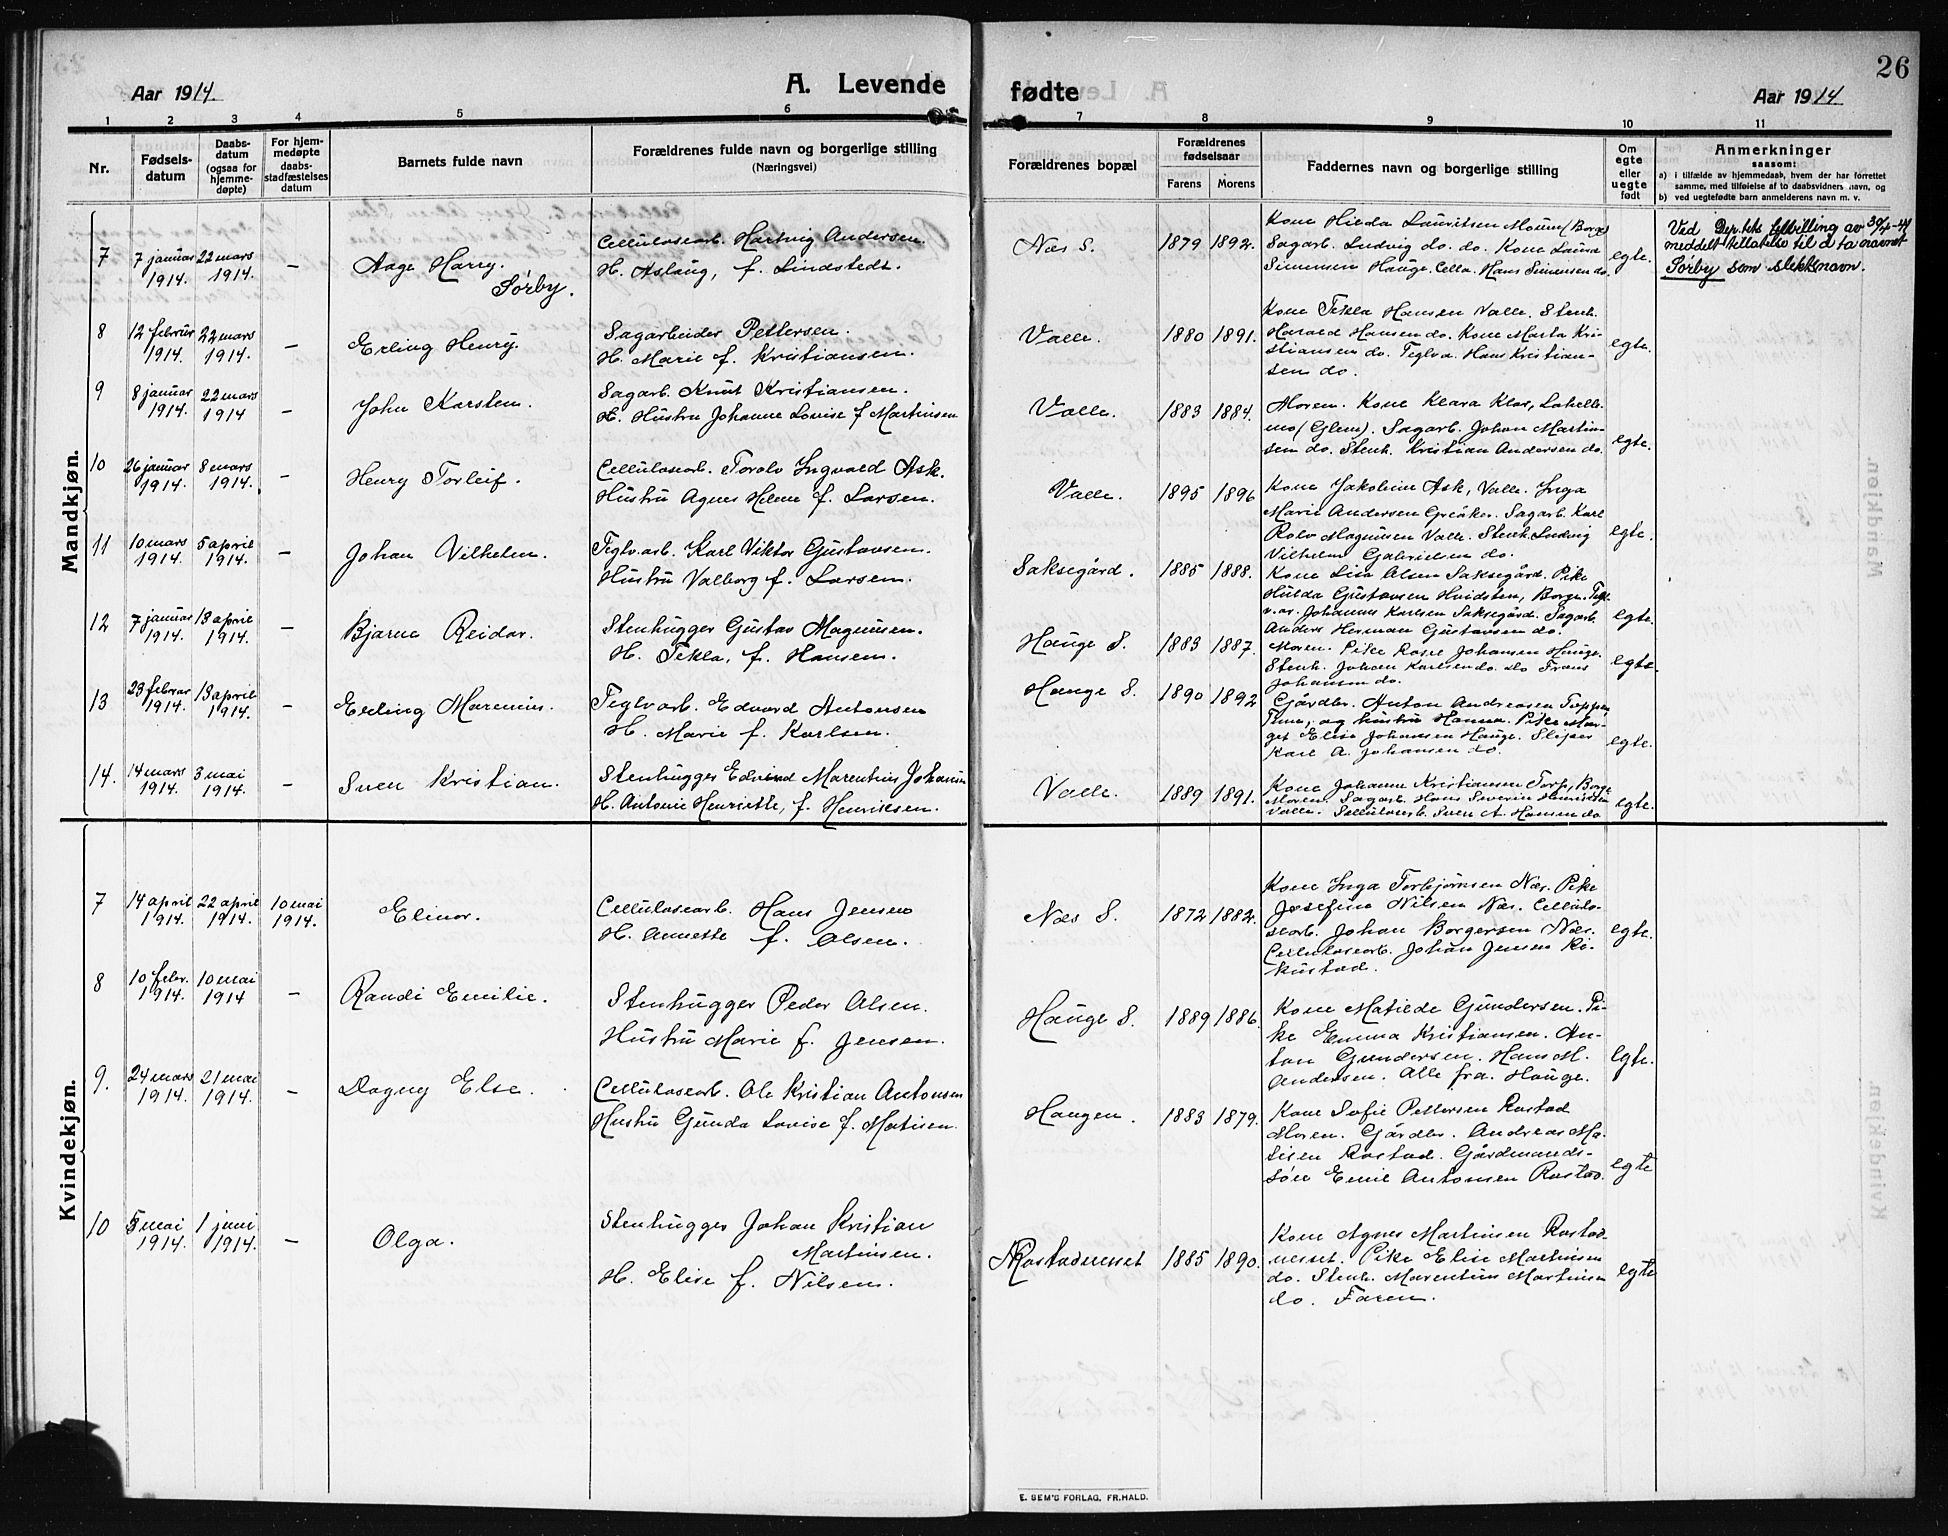 26
Aar 1914
A. Levende
fødte
Aar 1914
1 2 3 4 5 6 7 8 9 10 11
Nr.
Fødsels-
datum
Daabs-
datum
(ogsaa for
hjemme-
døpte)
For hjem-
medøpte
daabs-
stadfæstelses
datum
Barnets fulde navn
Forældrenes fulde navn og borgerlige stilling
(Næringsvei)
Forældrenes bopæl
Forældrenes
fødselsaar
Farens
Morens
Faddernes navn og borgerlige stilling
Om
egte
eller
uegte
født
Anmerkninger
saasom:
a) i tilfælde av hjemmedaab, hvem der har forrettet
samme, med tilføielse af to daabsvidners navn, og
b) ved uegtefødte barn anmelderens navn m. v.
Mandkjøn.
7
7 januar
1914.
22 mars
1914.
—
Aage Harry.
Sørby.
Celluloscarb. Hartvig Andersen.
H. Aslaug, f. Lindstedt.
Næs S.
1879
1892.
Kone Hilda Lauritsen Moum (Borge)
Sagarb. Ludvig do. do. Kone Laura
Simensen Hauge. Cellu. Hans Simensen do.
egte.
Ved Dep.tets bevilling av 30/4-41
meddelt tillatelse til å ta navnet
Sørby som slektsnavn.
8
12 februar
1914.
22 mars
1914.
—
Erling Henry.
Sagarbeider Pettersen.
H. Marie f. Kristiansen.
Valle.
1880
1891.
Kone Tekla Hansen Valle. Stenh.
Harald Hansen do. Kone Marta Kri-
stiansen do. Teglv.a. Hans Kristian-
sen do.
egte.
9
8 januar
1914.
22 mars
1914
—
John Karsten.
Sagarb. Knut Kristiansen.
H. Hustru Johanne Lovise f Martinsen
Valle.
1883
1884.
Moren. Kone Klara Klov, Lahelle-
mo (Glem). Sagarb. Johan Martin-
sen do. Stenh. Kristian Andersen do.
egte.
10
26 januar
1914.
8 mars
1914.
—
Henry Torleif.
Celluloscarb. Torolv Ingvald Ask.
Hustru Agnes Helene f. Larsen.
Valle.
1895
1896
Kone Jakobine Ask, Valle. Inga
Marie Andersen Greåker. Sagarb. Karl
Rolv Magnusen Valle. Stenh. Ludvig
Vilhelm Gabrielsen do.
egte.
11
10 mars
1914.
5 april
1914.
—
Johan Vilhelm.
Teglv.arb. Karl Viktor Gustavsen.
Hustru Valborg f. Larsen.
Saksegård.
1885
1888.
Kone Lisa Olsen Saksegård. Pike
Hulda Gustavsen Hvidsten, Borge. Tegl-
v.ar. Johannes Karlsen Saksegård. Sagarb.
Anders Herman Gustavsen do.
egte.
12
7 januar
1914.
13 april
1914.
—
Bjarne Reidar.
Stenhugger Gustav Magnusen.
H. Tekla, f. Hansen.
Hauge S.
1883
1887.
Moren. Pike Ragna Johansen Hauge.
Stenh. Johan Karlsen do. do Frans
Johansen do.
egte
13
23 februar
1914.
13 april
1914.
—
Erling Marenius.
Teglv.arb. Edvard Antonsen
H. Marie f. Karlsen.
Hauge S.
1890
1892
Gårdbr. Anton Andreasen Toppen
Tune, og hustru Hanna. Pike Mar-
get Elise Johansen Hauge. Sliper
Karl A. Johansen do.
egte.
14.
14 mars
1914.
3 mai
1914.
—
Sven Kristian.
Stenhugger Edvard Marentius Johansen
H. Antonie Henriette, f. Henriksen.
Valle.
1889
1891.
Kone Johanne Kristiansen Torp, Borge
Moren. Sagarb. Hans Severin Henriksen
Valle. Celluloscarb. Sven A. Hansen do
egte.
Kvindekjøn.
7
14 april
1914.
22 april
1914.
10 mai
1914.
Elinor.
Celluloscarb. Hans Jensen
H. Annette f. Olsen.
Næs S.
1872
1882.
Kone Inga Torbjørnsen Næs. Pike
Josefine Nilsen Næs. Cellulo-
searb. Johan Borgersen Næs.
Celluloscarb. Johan Jensen Ri-
kustad.
egte.
8
10 febr.
1914.
10 mai
1914
—
Randi Emilie.
Stenhugger Peder Olsen.
Hustru Marie f. Jensen.
Hauge S.
1889
1886.
Kone Matilde Gundersen. Pi-
ke Emma Kristiansen. An-
ton Gundersen. Hans M.
Andersen. Alle fra Hauge.
egte.
9.
24 mars
1914.
21 mai
1914.
—
Dagny Else.
Celluloscarb. Ole Kristian Antonsen
Hustru Gunda Lovise f. Matisen.
Haugen.
1883
1879.
Kone Sofie Pettersen Rostad
Moren. Gårdbr. Andreas Ma-
tisen Rostad. Gårdmands-
søn Emil Antonsen Rostad.
egte
10
5 mai
1914.
1 juni
1914.
—
Olga.
Stenhugger Johan Kristian
Martinsen.
H. Elise f. Nilsen.
Rostadnesset
1885
1890.
Kone Agnes Martinsen Rostad-
nesset. Pike Elise Martinsen
do. Stenh. Marentius Martinsen
do. Faren.
egte
E. SEM'S FORLAG, FR.HALD.